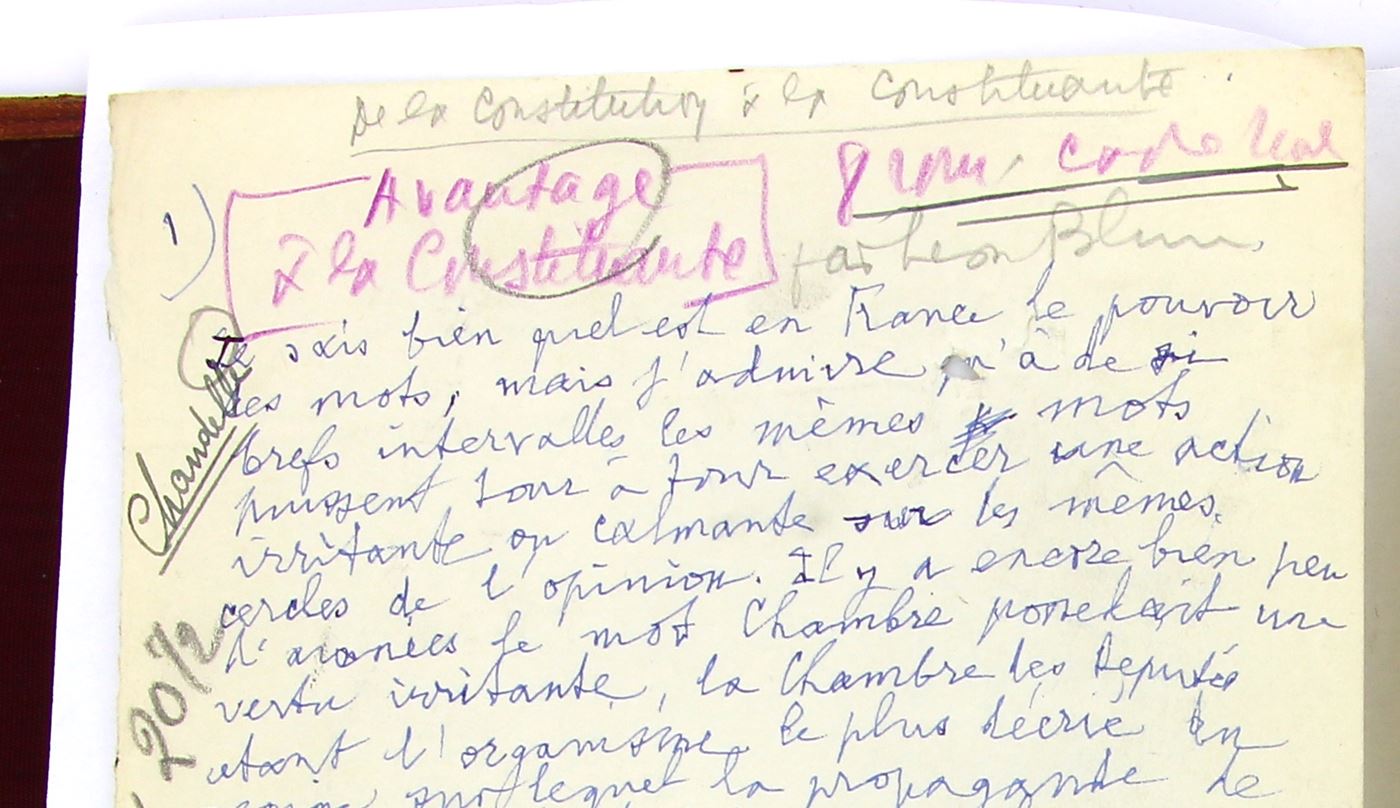 De la Constitution à la Constituante
1)
Avantage
à la Constituante
par Léon Blum.
Je sais bien quel est en France le pouvoir
des mots, mais j'admire qu'à de si
brefs intervalles les mêmes mots
puissent tour à tour exercer une action
irritante ou calmante sur les mêmes
cercles de l'opinion. Il y a encore bien peu
d'années le mot Chambre possédait une
vertu irritante, la Chambre des Députés
étant l'organisme le plus décrié
sur lequel la propagande de
Chandelle
20 1/2